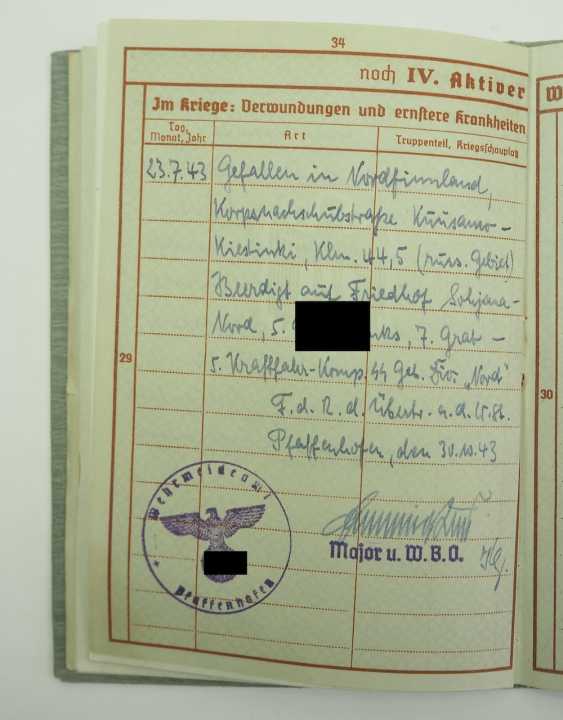 34
noch IV. Aktiver
W
Im Kriege: Verwundungen und ernstere Krankheiten
Tag, Monat, Jahr
Art
Truppenteil, Kriegsschauplatz
23.7.43 Gefallen in Nordfinnland,
Korpsnachschubstraße Kuusamo-
Kiestinki, Klm. 44,5 (russ. Gebiet)
Beerdigt auf Friedhof Sohjana-
Nord, 5. links, 7. Grab –
5. Kraftfahr-Komp. SS Geb. Div. „Nord"
F. d. R. d. Übertr. a. d. W. St.
Pfaffenhofen, den 30.10.43
29
30
Wehrmeldeamt
Pfaffenhofen
Major u. W.B.O.